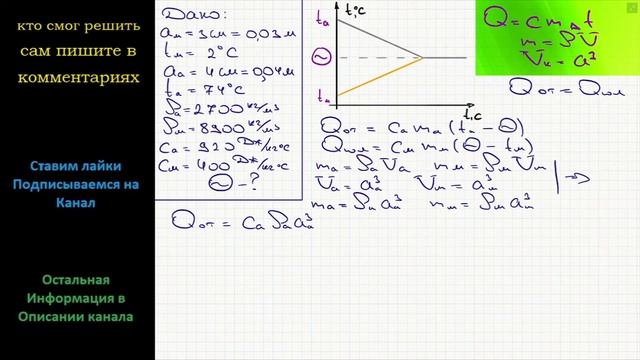 кто смог решить
сам пишите в
комментариях
Ставим лайки
Подписываемся на
Канал
Остальная
Информация в
Описании канала
Дано:
aм = 3см = 0,03м
tм = 2°C
aа = 4см = 0,04м
tа = 74°C
ρа = 2700 кг/м³
ρм = 8900 кг/м³
cа = 920 Дж/кг°C
cм = 400 Дж/кг°C
Θ - ?
t,°C
tа
Θ
tа
t,c
Q = c m Δt
m = ρV
Vк = a³
Qот = Qпол
Qот = cа mа (tа - Θ)
Qпол = cм mм (Θ - tм)
mа = ρа Vа mм = ρм Vм
Vа = aа³ Vм = aм³
mа = ρа aа³ mм = ρм aм³
Qот = cа ρа aа³